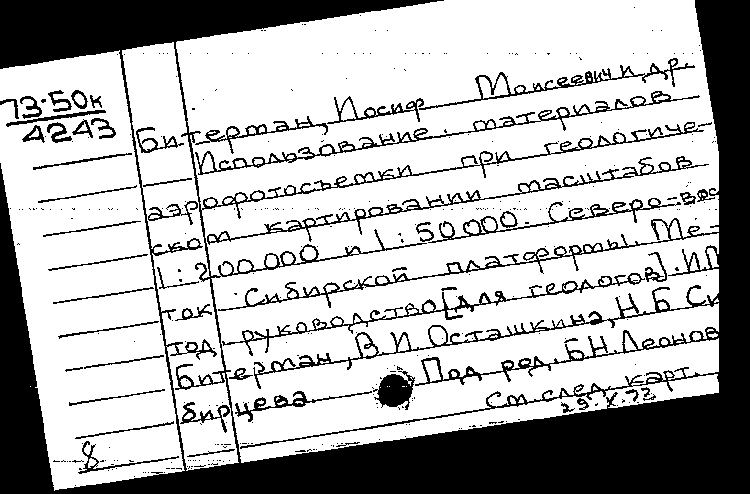 73-50к
4243
Битерман, Иосиф Моисеевич и др.
Использование материалов
аэрофотосъемки при геологиче-
ском картировании масштабов
1:200.000 и 1:50.000. Северо-вос
ток Сибирской платформы. Ме-
тод. руководство [для геологов]. И.М.
Битерман, В.И. Осташкина, Н.Б Си
бирцева. Под ред. Б.Н. Леонов
См. след. карт.
29.X.73
8